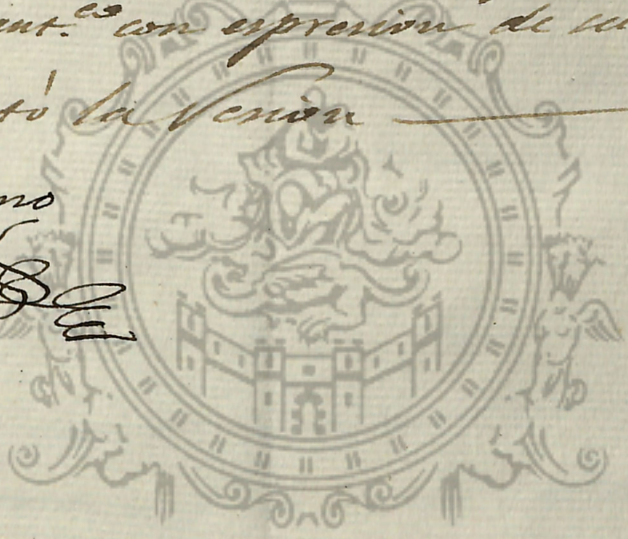 ant.es con espresion de su
tó la Sesion
no